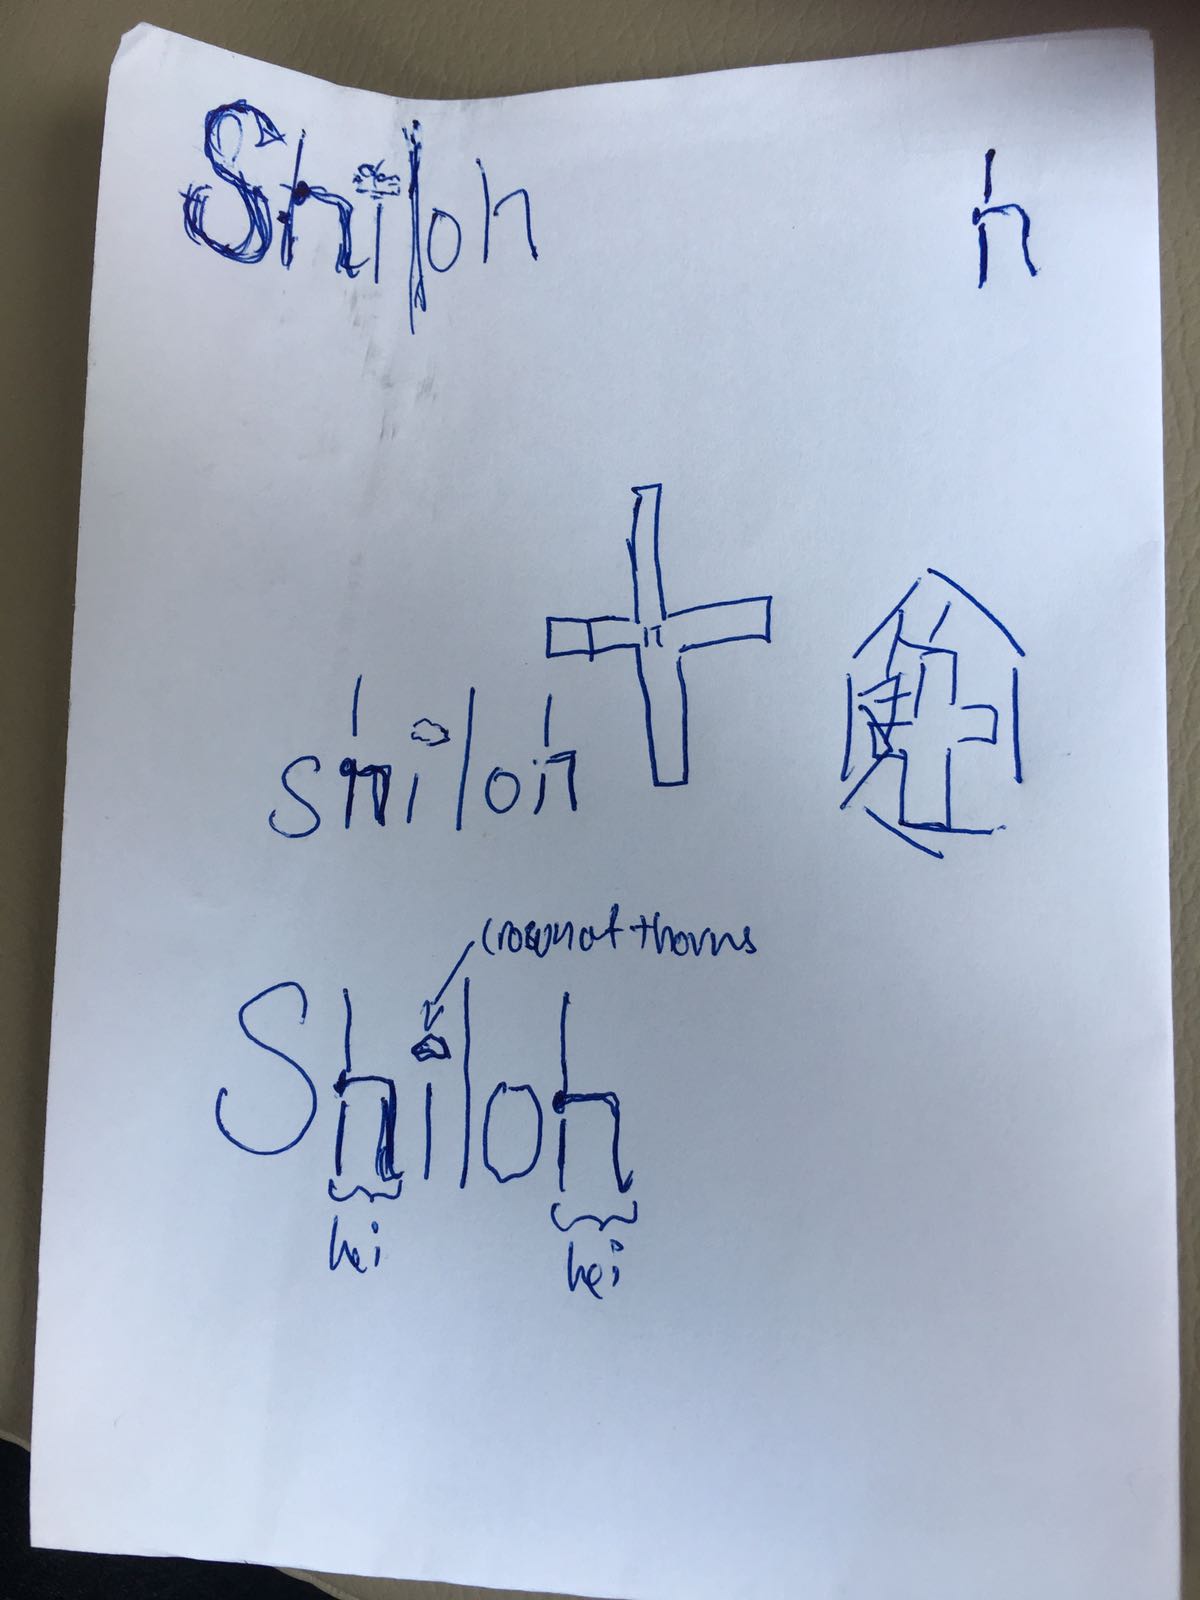 Shiloh
h
shiloh
crown of thorns
Shiloh
hei
hei